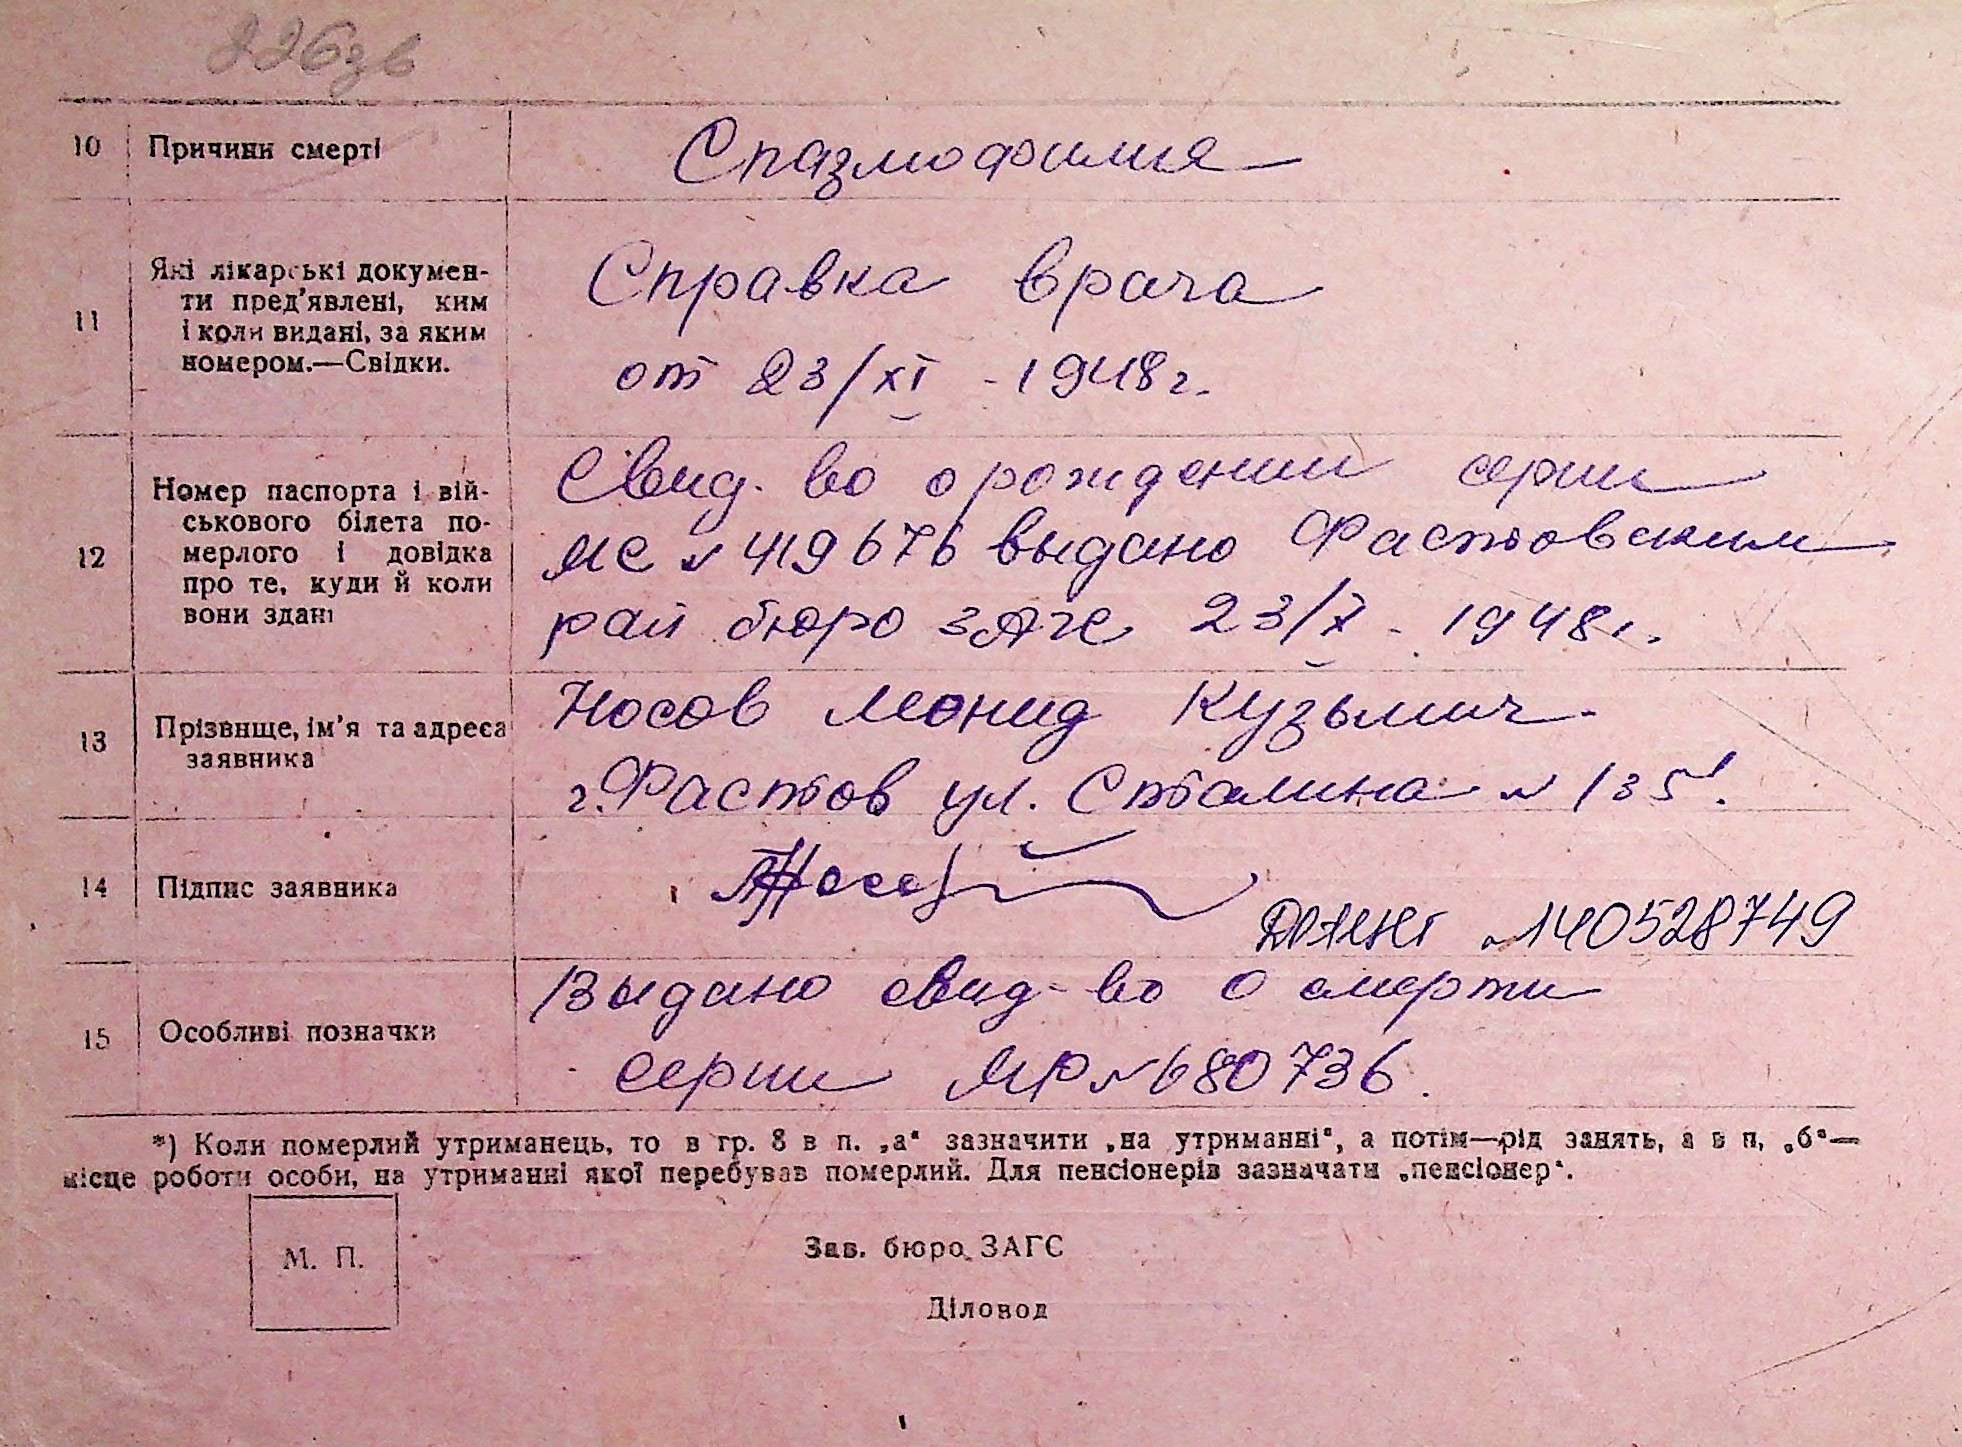 226зв
10 Причини смерті Спазмофилия
11 Які лікарські докумен-
ти пред'явлені, ким
і коли видані, за яким
номером.—Свідки.
Справка врача
от 23/XI - 1948 г.
12 Номер паспорта і вій-
ськового білета по-
мерлого і довідка
про те, куди й коли
вони здані
Свид-во о рождении серии
МС № 419676 выдано Фастовским
рай бюро ЗАГС 23/X - 1948 г.
13 Прізвище, ім'я та адреса
заявника
Носов Леонид Кузьмич.
г. Фастов ул. Сталина № 135.
14 Підпис заявника
№140528749
15 Особливі позначки
Выдано свид-во о смерти
серии МР № 680736.
*) Коли померлий утриманець, то в гр. 8 в п. „а“ зазначити „на утриманні“, а потім—рід занять, а в п, „б“—
місце роботи особи, на утриманні якої перебував померлий. Для пенсіонерів зазначати „пенсіонер“.
М. П.
Зав. бюро ЗАГС
Діловод